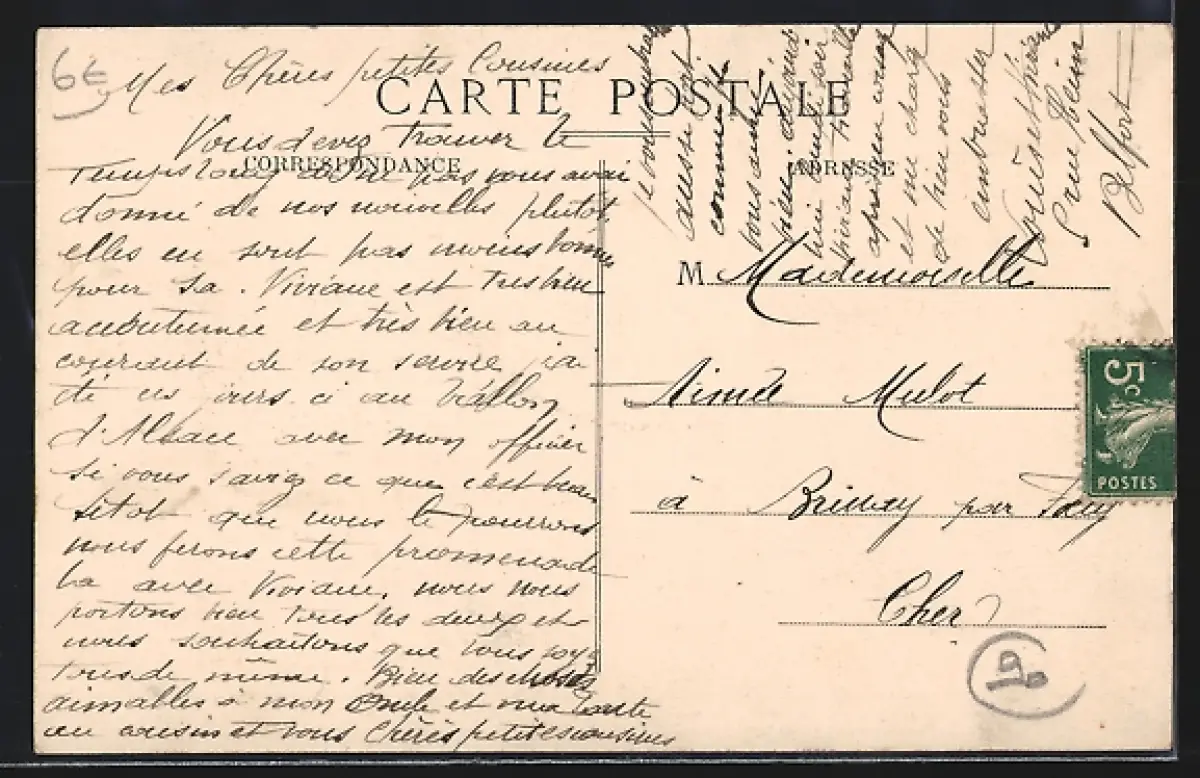 6€
Mes Chères petites Cousines
CARTE POSTALE
Vous devez trouver le
CORRESPONDANCE
temps long de ne pas vous avoir
donné de nos nouvelles plutot,
elles en sont pas moins bonnes
pour sa. Viviane est tres bien
accoutumée et très bien au
courant de son service j'ai
été ces jours ci au Vallon
d'Alsace avec mon officier
si vous saviez ce que c'est beau
sitot que nous le pourrons
nous ferons cette promenade
la avec Viviane, nous nous
portons bien tous les deux et
nous souhaitons que vous soyez
tous de même. Bien des choses
aimables à mon Oncle et ma Tante
au cousin et vous Chères petites cousines
aussi
comme
vous aussi
bien
Viviane travaille
et me charge
de bien vous
embrasser
Belfort
ADRESSE
M. Mademoiselle
Aimée Mulot
à Brinay par Foëcy
Cher
5c
POSTES